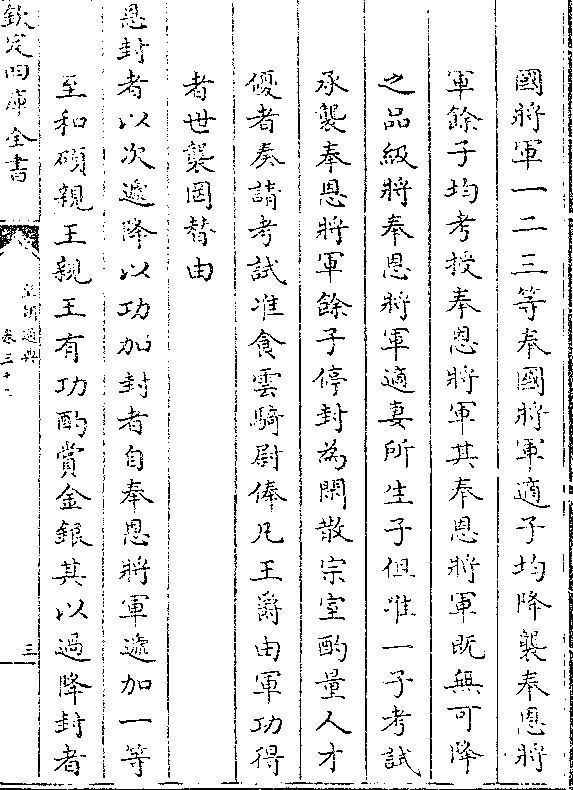 國將軍一二三等奉國將軍適子均降襲奉恩將
軍餘子均考授奉恩將軍其奉恩將軍既無可降
之品級將奉恩將軍適妻所生子但准一子考試
承襲奉恩將軍餘子停封為閑散宗室酌量人才
優者奏請考試准食雲騎尉俸凡王爵由軍功得
者世襲罔替由
恩封者以次遞降以功加封者自奉恩將軍遞加一等
至和碩親王親王有功酌賞金銀其以過降封者
欽定四庫全書
皇朝通典
卷三十
三